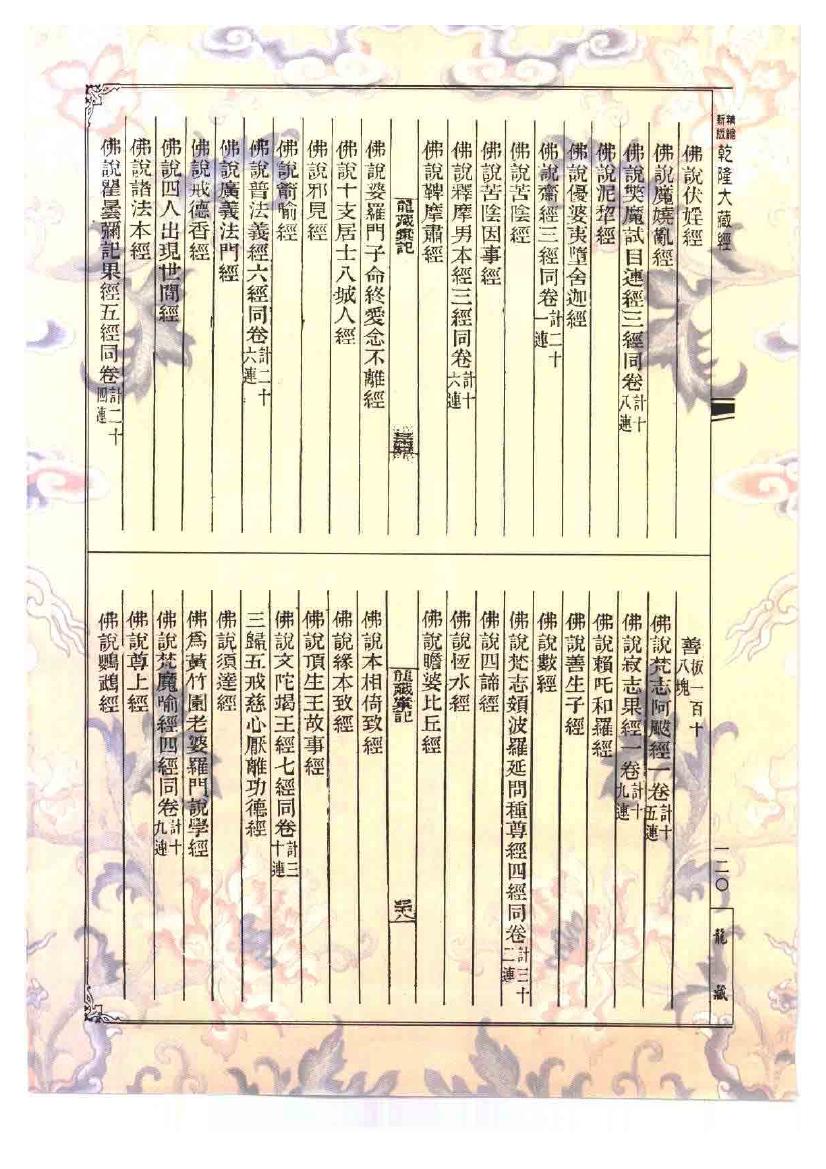 精繪新版 乾隆大藏經
佛說伏婬經
佛說魔嬈亂經
佛說弊魔試目連經三經同卷計十八連
佛說泥犂經
佛說優婆夷墮舍迦經
佛說齋經三經同卷計二十一連
佛說苦陰經
佛說苦陰因事經
佛說釋摩男本經三經同卷計十六連
佛說鞞摩肅經
龍藏彙記
佛說婆羅門子命終愛念不離經
佛說十支居士八城人經
佛說邪見經
佛說箭喻經
佛說普法義經六經同卷計二十六連
佛說廣義法門經
佛說戒德香經
佛說四人出現世間經
佛說諸法本經
佛說瞿曇彌記果經五經同卷計二十四連
善板一百十八塊
佛說梵志阿颰經一卷計十五連
佛說寂志果經一卷計十九連
佛說賴吒和羅經
佛說善生子經
佛說數經
佛說梵志頞波羅延問種尊經四經同卷計三十二連
佛說四諦經
佛說恆水經
佛說瞻婆比丘經
龍藏彙記
佛說本相倚致經
佛說緣本致經
佛說頂生王故事經
佛說文陀竭王經七經同卷計三十連
三歸五戒慈心厭離功德經
佛說須達經
佛為黃竹園老婆羅門說學經
佛說梵魔喻經四經同卷計十九連
佛說尊上經
佛說鸚鵡經
一二〇
龍藏